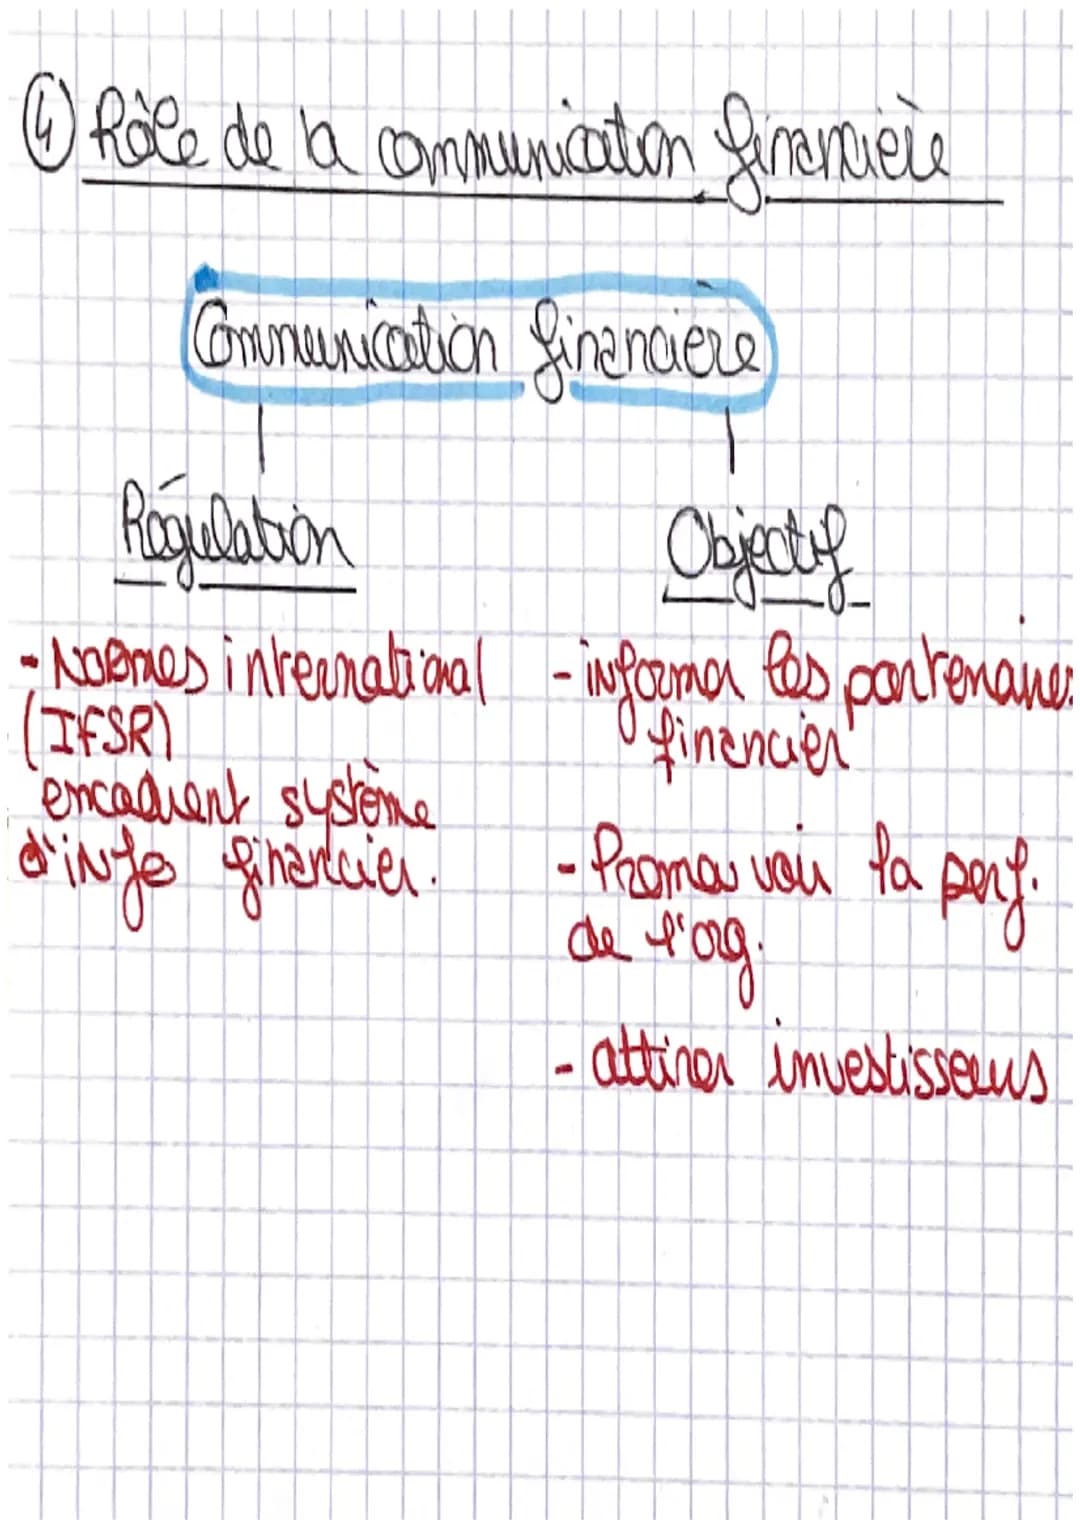 ④ Rôle de la communication financière
Communication financière
Régulation
- Normes international
(IFSR)
encadrent système
d'info financier.
Objectif
- informer les partenaires
financier
- Promouvoir la perf.
de l'org.
- attirer investisseurs